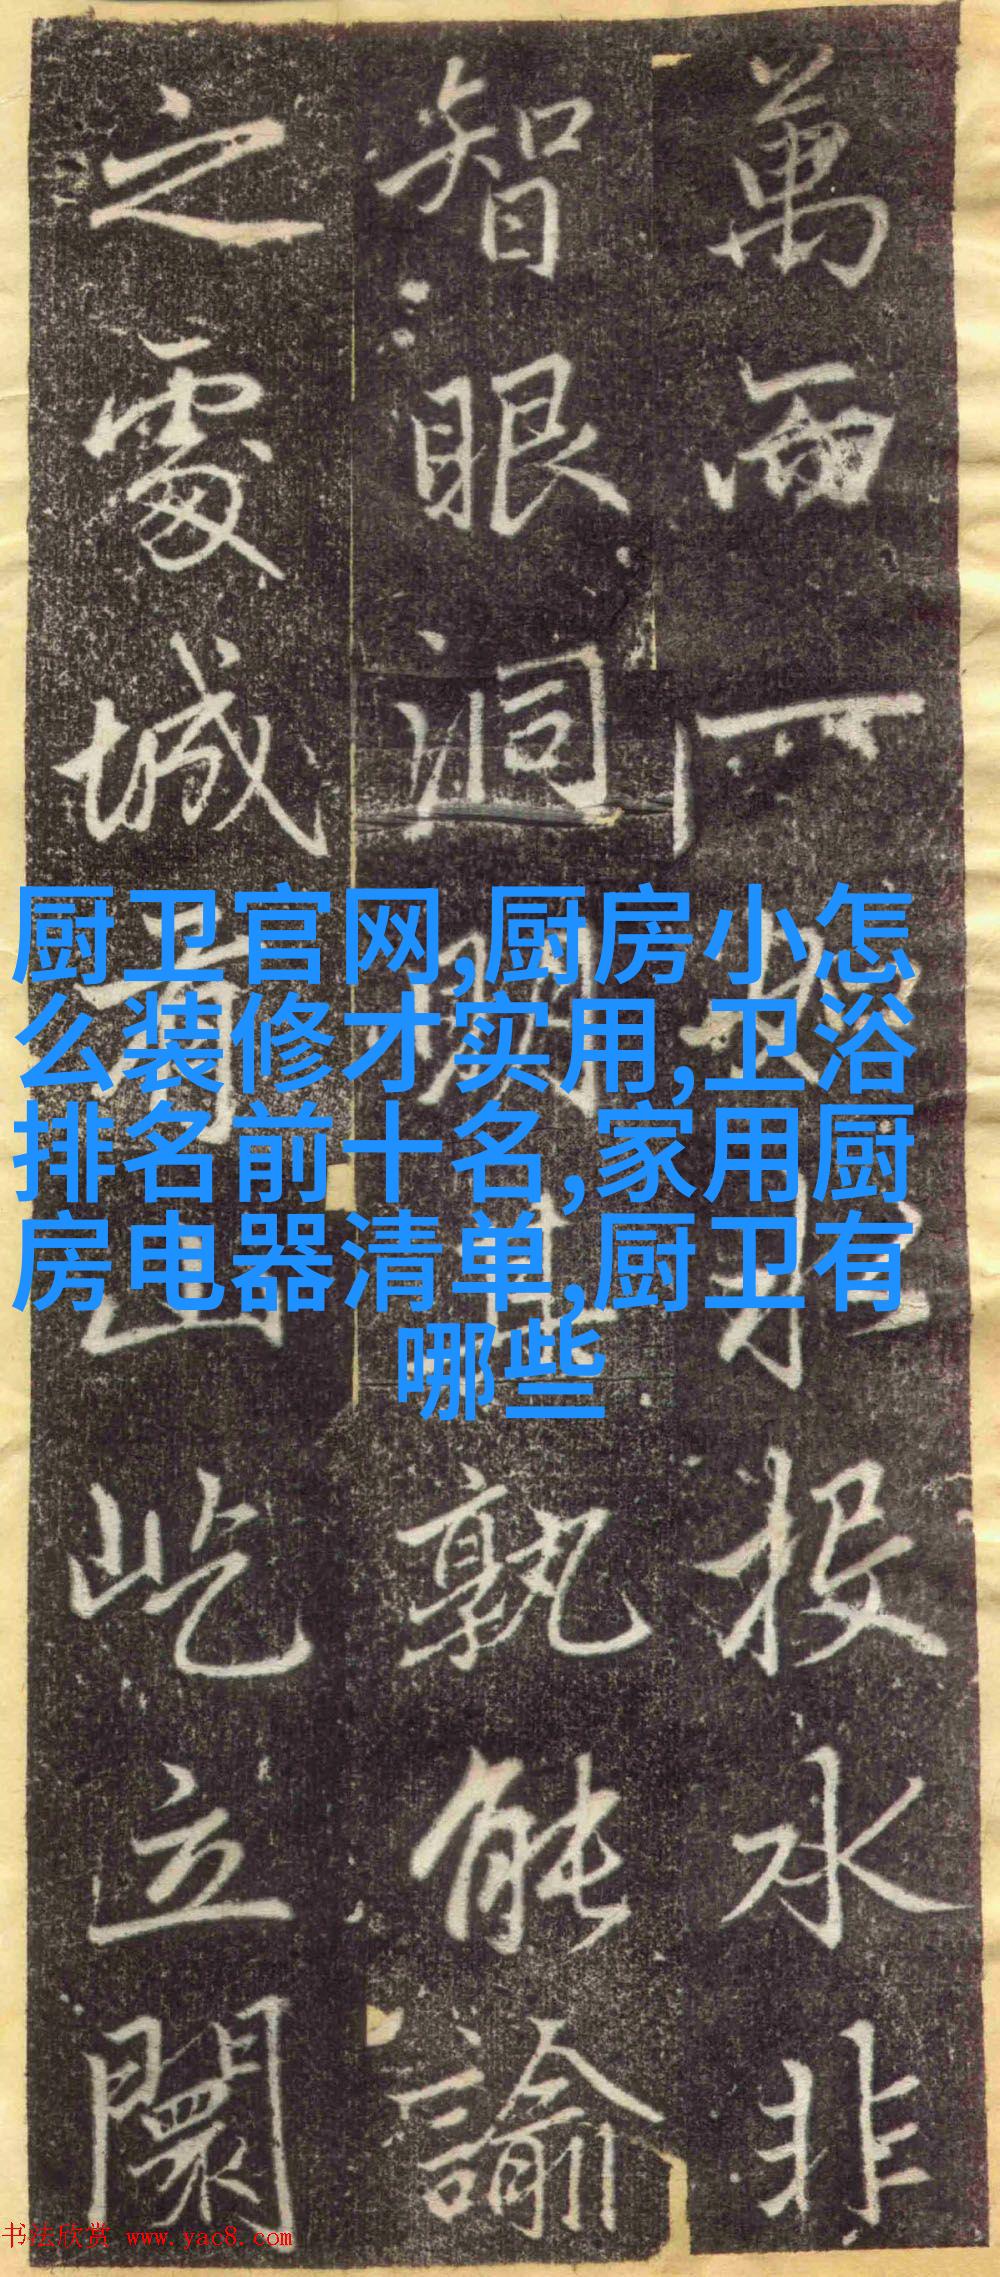 萬而一如水投水非
智眼洞明其孰能諭
之處城山屹立闤
厨卫官网,厨房小怎
么装修才实用,卫浴
排名前十名,家用厨
房电器清单,厨卫有
哪些
书法欣赏 www.yac8.com